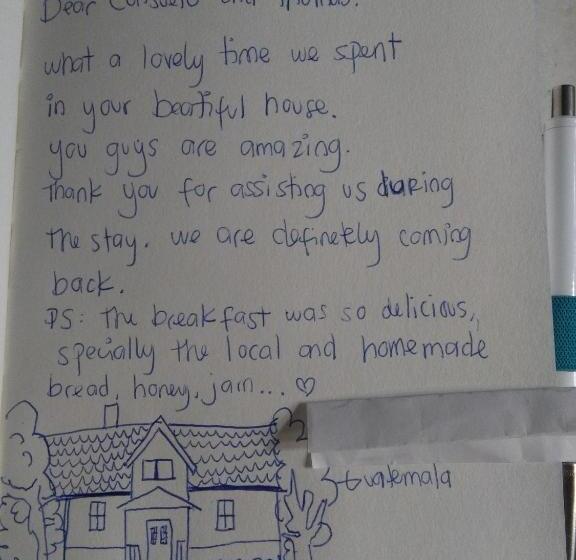 Dear Consuelo and Thomas.
what a lovely time we spent
in your beatiful house.
you guys are amazing.
thank you for assisting us during
the stay. we are definetely coming
back.
PS: the breakfast was so delicious,
specially the local and homemade
bread, honey, jam... ♡
Guatemala